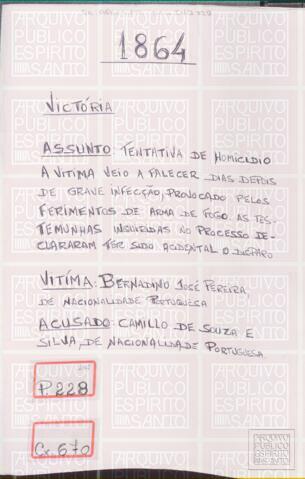 1864
VICTÓRIA
ASSUNTO: TENTATIVA DE HOMICÍDIO
A VITIMA VEIO A FALECER, DIAS DEPOIS
DE GRAVE INFECÇÃO, PROVOCADO PELOS
FERIMENTOS DE ARMA DE FOGO. AS TES-
TEMUNHAS INQUIRIDAS NO PROCESSO DE-
CLARARAM TER SIDO ACIDENTAL O DISPARO
VITÍMA: BERNADINO JOSÉ PEREIRA,
DE NACIONALIDADE PORTUGUESA
ACUSADO: CAMILLO DE SOUZA E
SILVA, DE NACIONALIDADE PORTUGUESA
P. 228
CX. 670
ARQUIVO
PÚBLICO
ESPÍRITO
SANTO